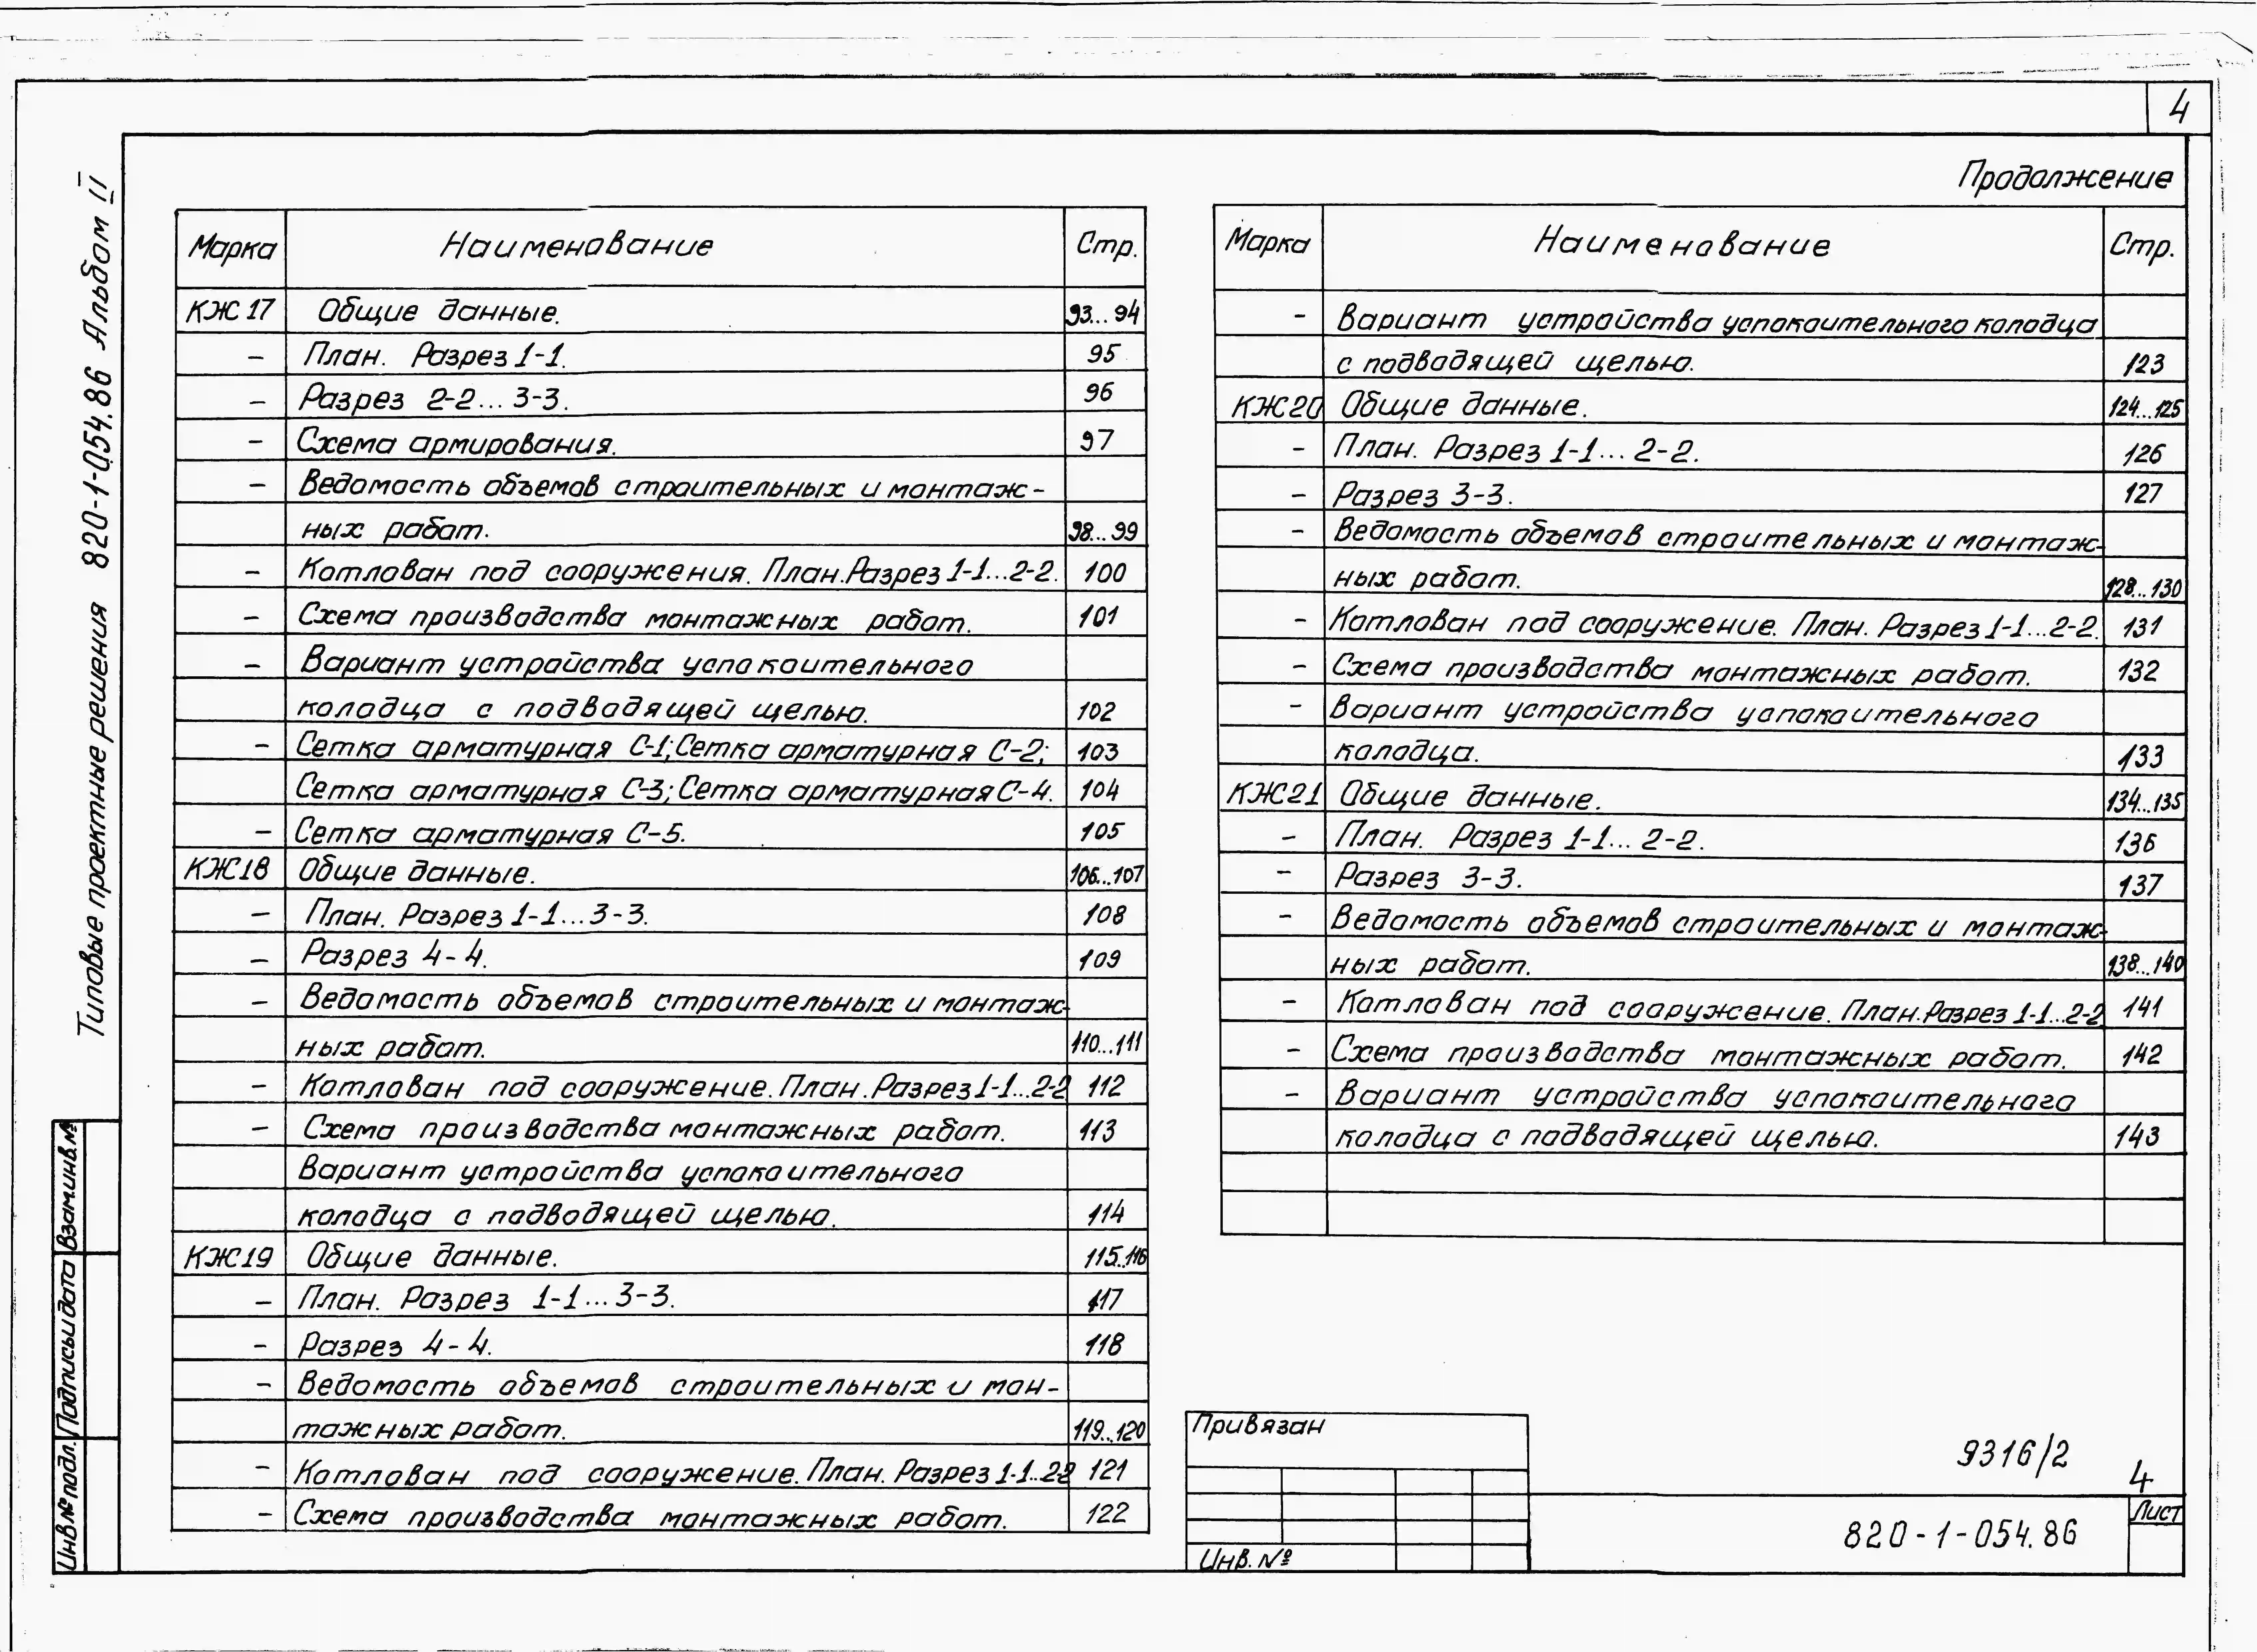 4
Продолжение
Типовые проектные решения 820-1-054.86 Альбом II
Марка Наименование Стр.
КЖ 17 Общие данные. 93...94
– План. Разрез 1-1. 95
– Разрез 2-2...3-3. 96
– Схема армирования. 97
– Ведомость объемов строительных и монтаж-
ных работ. 98...99
– Котлован под сооружения. План. Разрез 1-1...2-2. 100
– Схема производства монтажных работ. 101
– Вариант устройства успокоительного
колодца с подводящей щелью. 102
– Сетка арматурная С-1; Сетка арматурная С-2; 103
Сетка арматурная С-3; Сетка арматурная С-4. 104
– Сетка арматурная С-5. 105
КЖ18 Общие данные. 106...107
– План. Разрез 1-1...3-3. 108
– Разрез 4-4. 109
– Ведомость объемов строительных и монтаж-
ных работ. 110...111
– Котлован под сооружение. План. Разрез 1-1...2-2 112
– Схема производства монтажных работ. 113
Вариант устройства успокоительного
колодца с подводящей щелью. 114
КЖ19 Общие данные. 115..116
– План. Разрез 1-1...3-3. 117
– Разрез 4-4. 118
– Ведомость объемов строительных и мон-
тажных работ. 119...120
– Котлован под сооружение. План. Разрез 1-1..2-2 121
– Схема производства монтажных работ. 122
Марка Наименование Стр.
– Вариант устройства успокоительного колодца
с подводящей щелью. 123
КЖ20 Общие данные. 124...125
– План. Разрез 1-1...2-2. 126
– Разрез 3-3. 127
– Ведомость объемов строительных и монтаж-
ных работ. 128...130
– Котлован под сооружение. План. Разрез 1-1...2-2. 131
– Схема производства монтажных работ. 132
– Вариант устройства успокоительного
колодца. 133
КЖ21 Общие данные. 134...135
– План. Разрез 1-1...2-2. 136
– Разрез 3-3. 137
– Ведомость объемов строительных и монтаж-
ных работ. 138...140
– Котлован под сооружение. План. Разрез 1-1...2-2 141
– Схема производства монтажных работ. 142
– Вариант устройства успокоительного
колодца с подводящей щелью. 143
Взам.инв.№
Подпись и дата
Инв.№ подл.
Привязан
Инв. №
9316/2
4
820-1-054.86
Лист